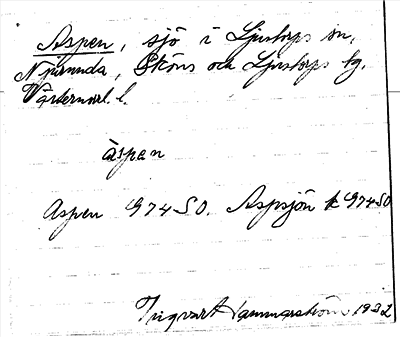 Aspen, sjö i Ljustorps sn,
Njurunda, Sköns och Ljustorps tg.
Västernorrl. l.
àspen
Aspen G974SO. Aspsjön k G974SO
Ingvart Hammarström 1932